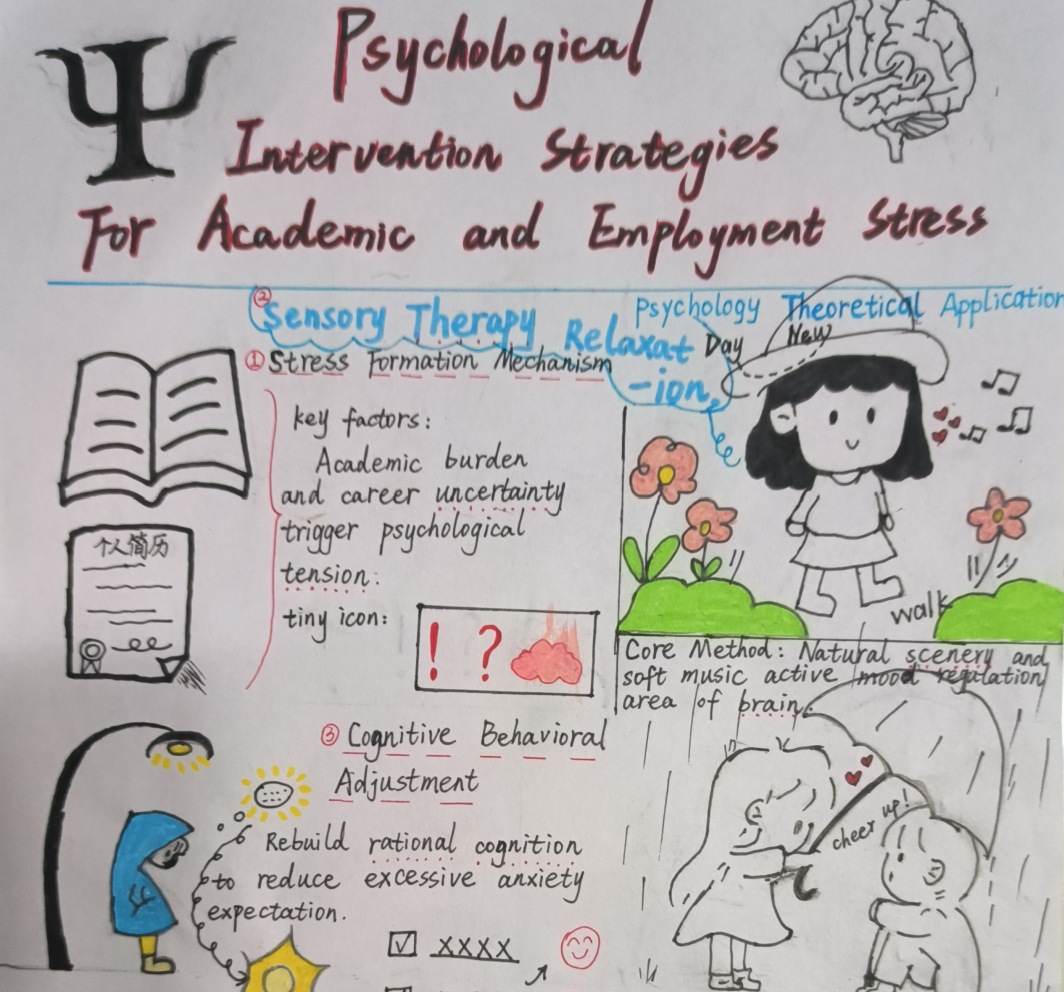 Ψ
Psychological
Intervention Strategies
For Academic and Employment Stress
② Sensory Therapy Relaxat
-ion
Psychology Theoretical Application
① Stress Formation Mechanism
key factors:
Academic burden
and career uncertainty
trigger psychological
tension:
tiny icon:
! ?
个人简历
New
Day
walk
Core Method: Natural scenery and
soft music active mood regulation
area of brain.
③ Cognitive Behavioral
Adjustment
Rebuild rational cognition
to reduce excessive anxiety
expectation.
☑ XXXX
cheer up!